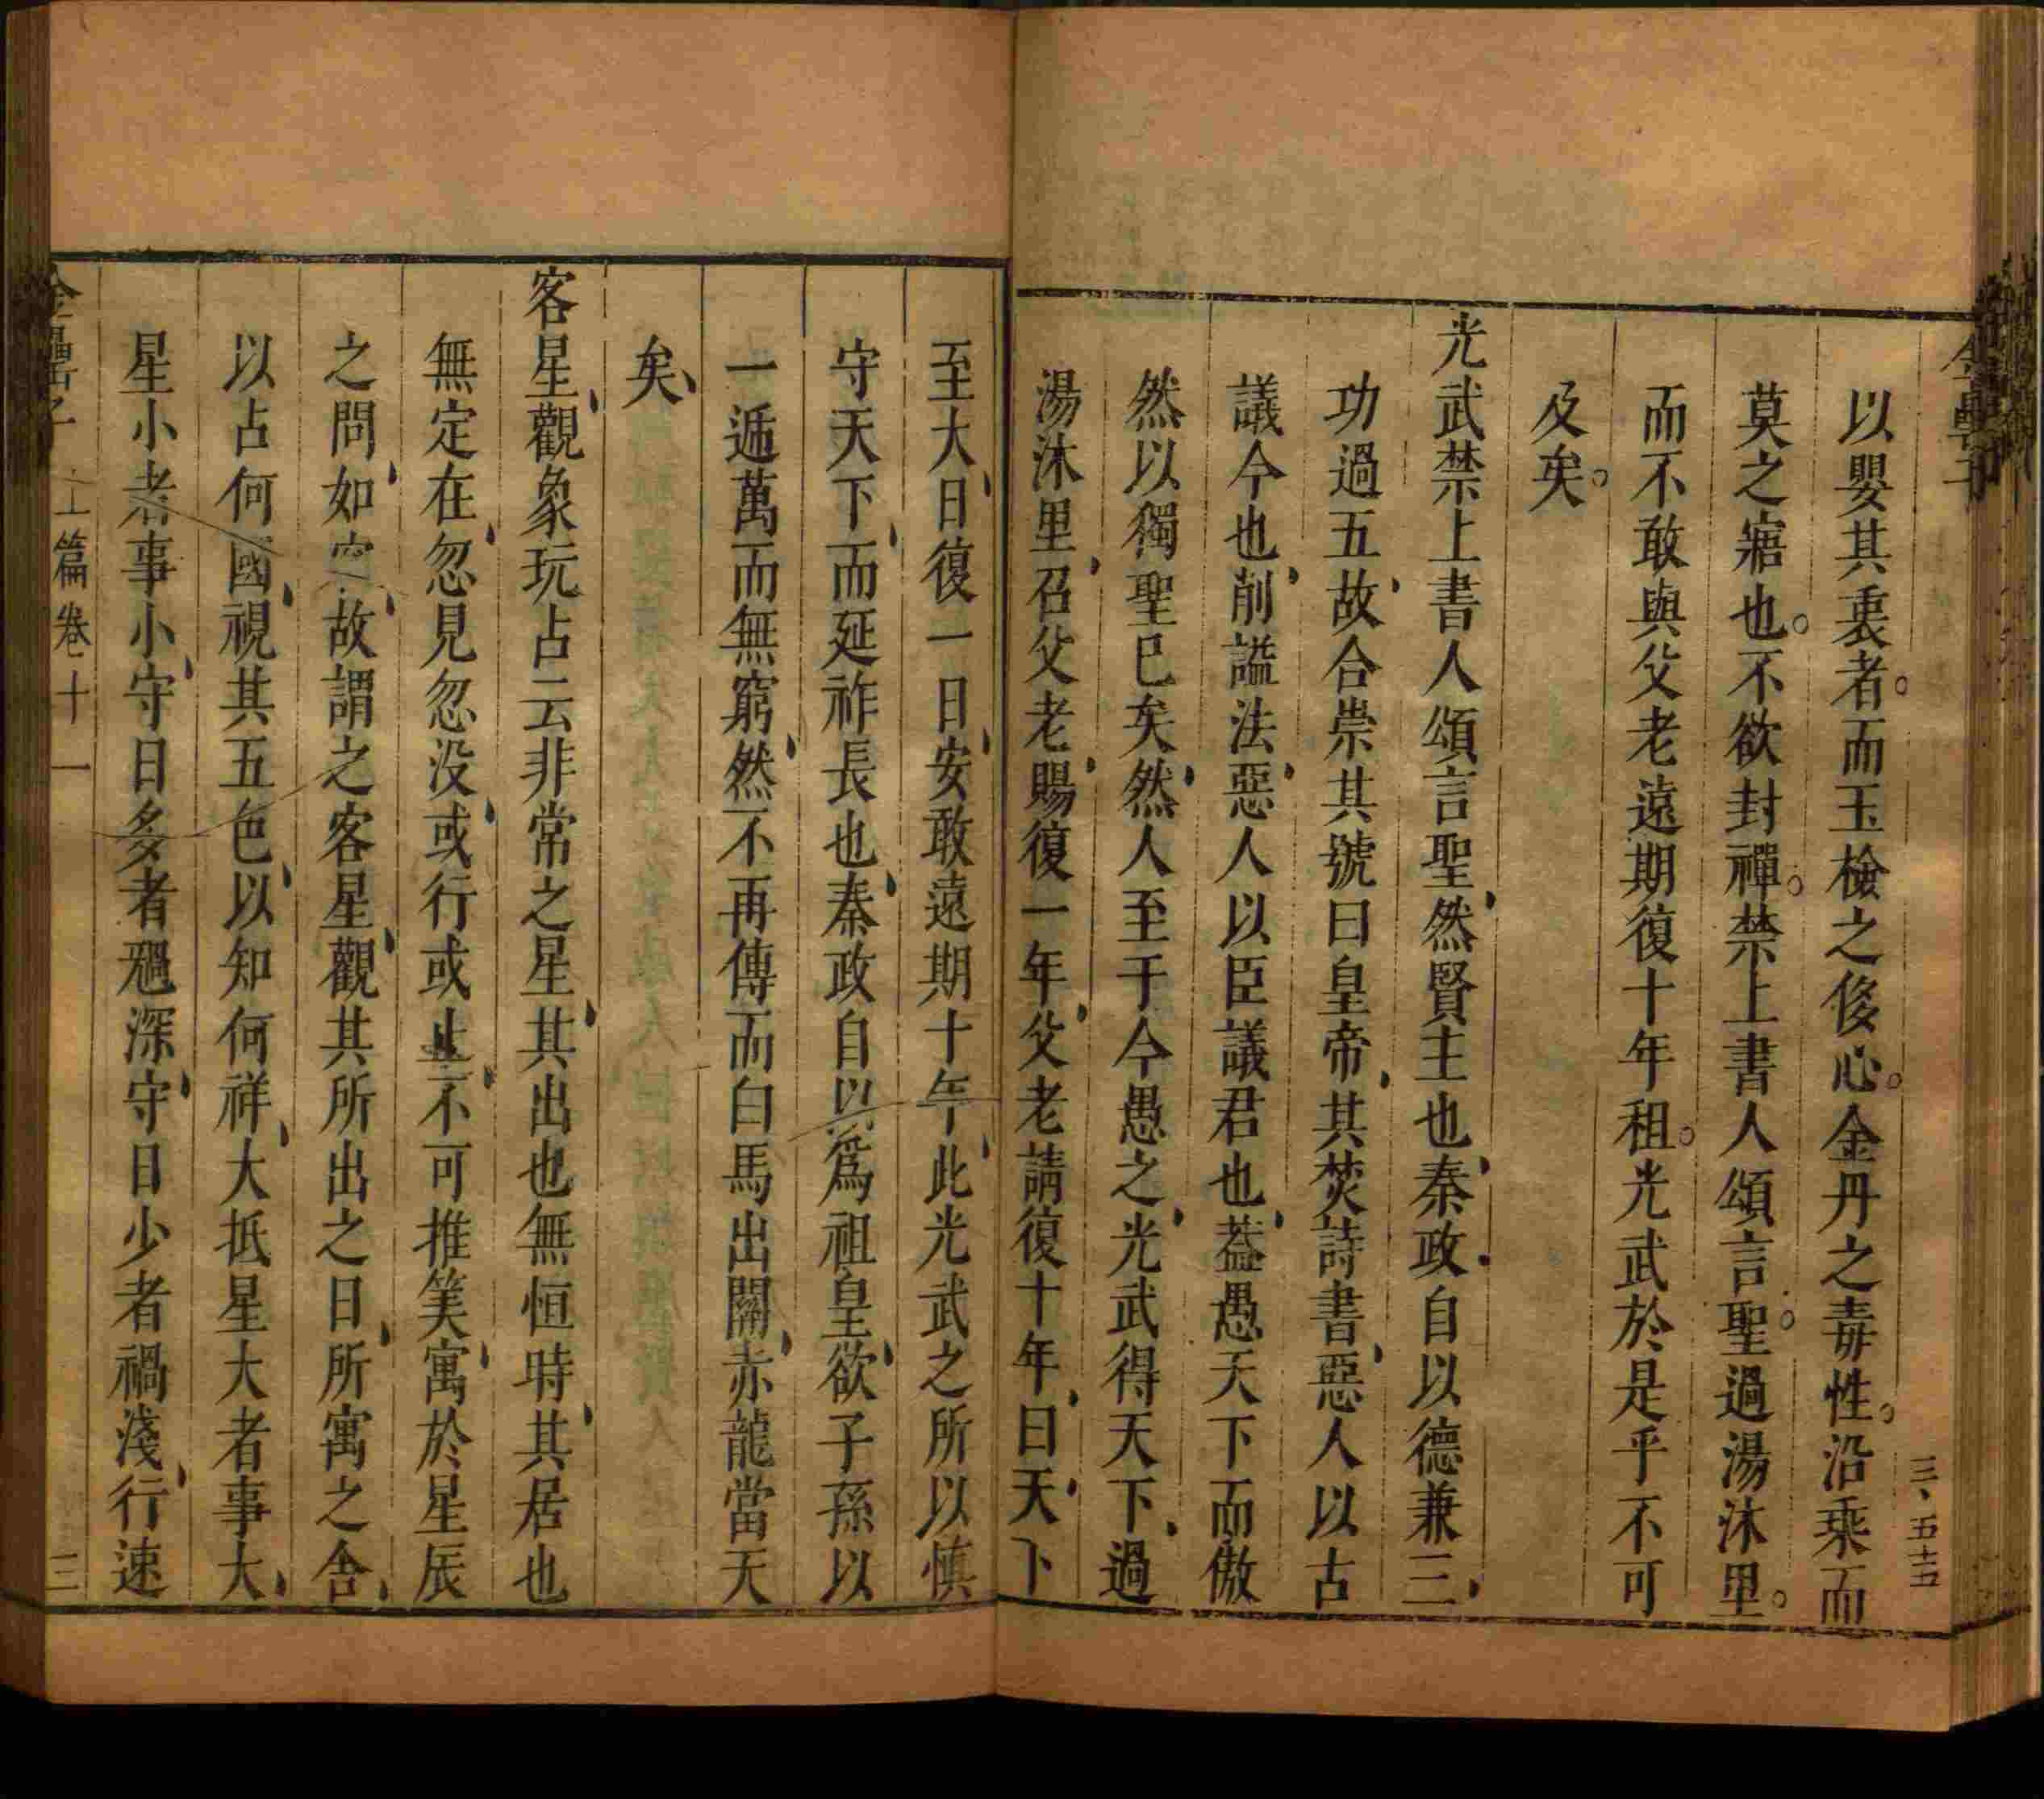 金罍子
三、五十五
以嬰其衷者。而玉檢之侈心。金丹之毒性。沿乘而
莫之寤也。不欲封禪。禁上書人頌言聖。過湯沐里。
而不敢與父老遠期復十年租。光武於是乎不可
及矣。
光武禁上書人頌言聖、然賢主也、秦政、自以德兼三、
功過五、故合崇其號曰皇帝、其焚詩書、惡人以古
議今也、削謚法、惡人以臣議君也、葢愚天下而傲
然以獨聖巳矣、然人至于今愚之、光武得天下、過
湯沐里、召父老、賜復一年、父老請復十年、曰天、下
至大、日復一日、安敢遠期十年、此光武之所以慎
守天下、而延祚長也、秦政自以爲祖皇、欲子孫以
一遞萬而無窮、然不再傳而白馬出關、赤龍當天
矣、
客星、觀象玩占云非常之星、其出也無恒時、其居也
無定在、忽見忽没、或行或止、不可推筭、寓於星辰
之間、如、故謂之客星、觀其所出之日、所寓之舎、
以占何國、視其五色、以知何祥、大抵星大者事大、
星小者事小、守日多者禍深、守日少者禍淺、行速
金罍子 上篇卷十一 三